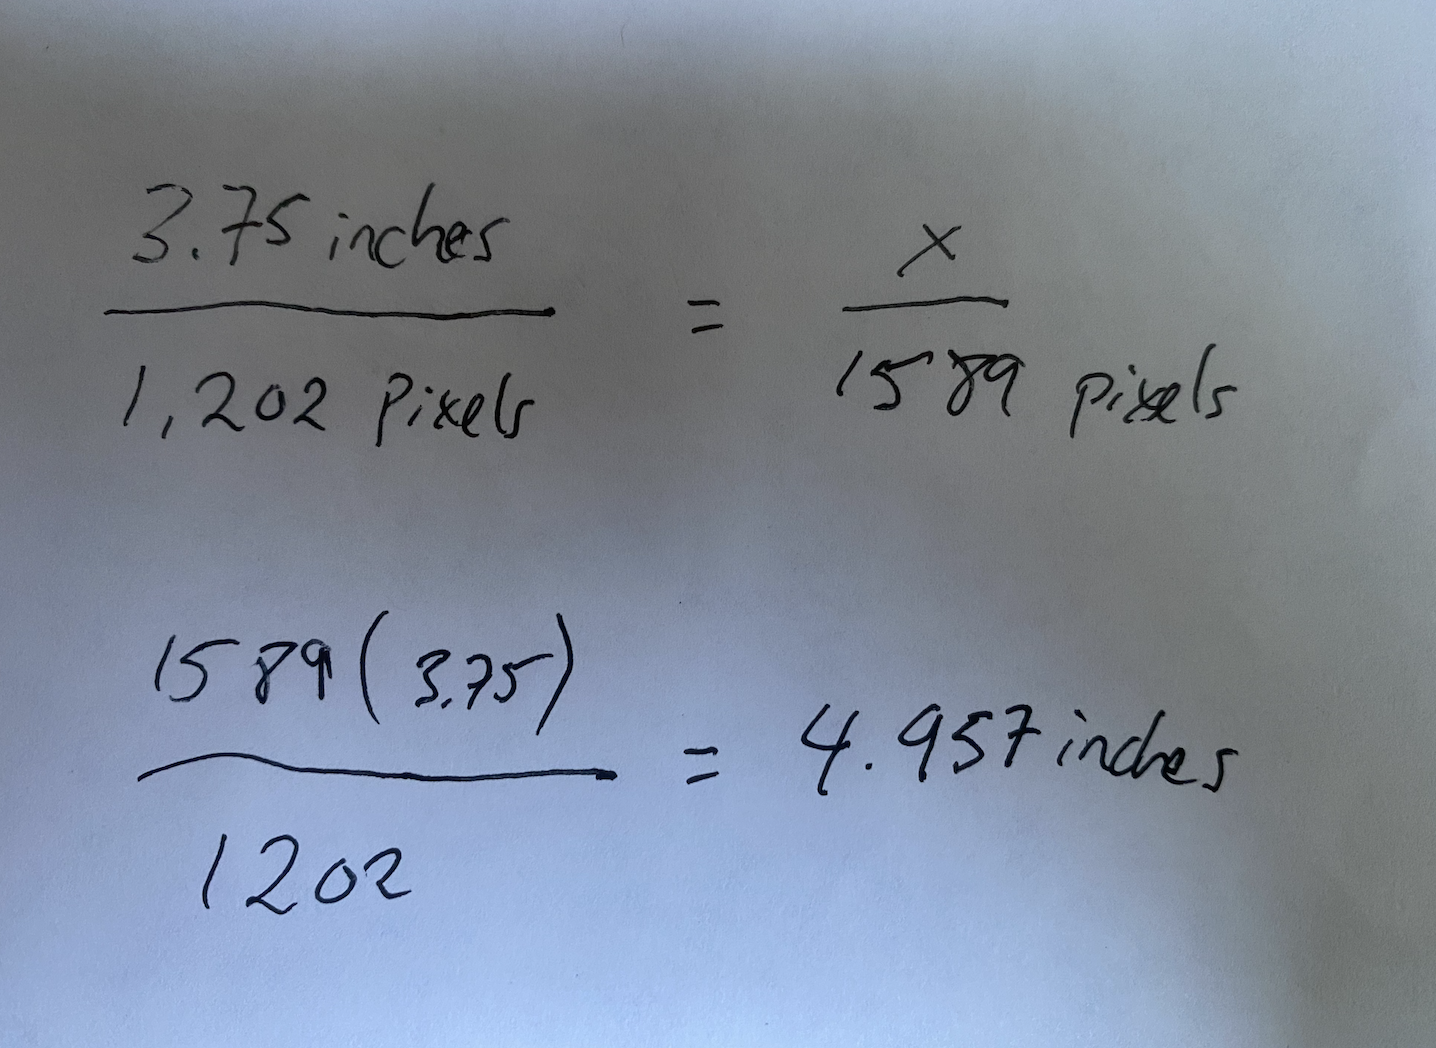 3.75 inches / 1,202 pixels = x / 1589 pixels
1589(3.75) / 1202 = 4.957 inches